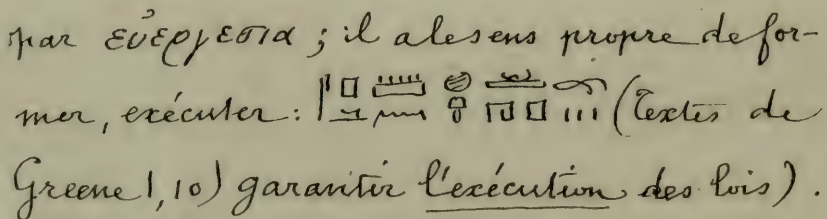 par εὐεργεσια ; il a le sens propre de for-
mer, exécuter : (Textes de
Greene 1, 10) garantir l'exécution des lois).